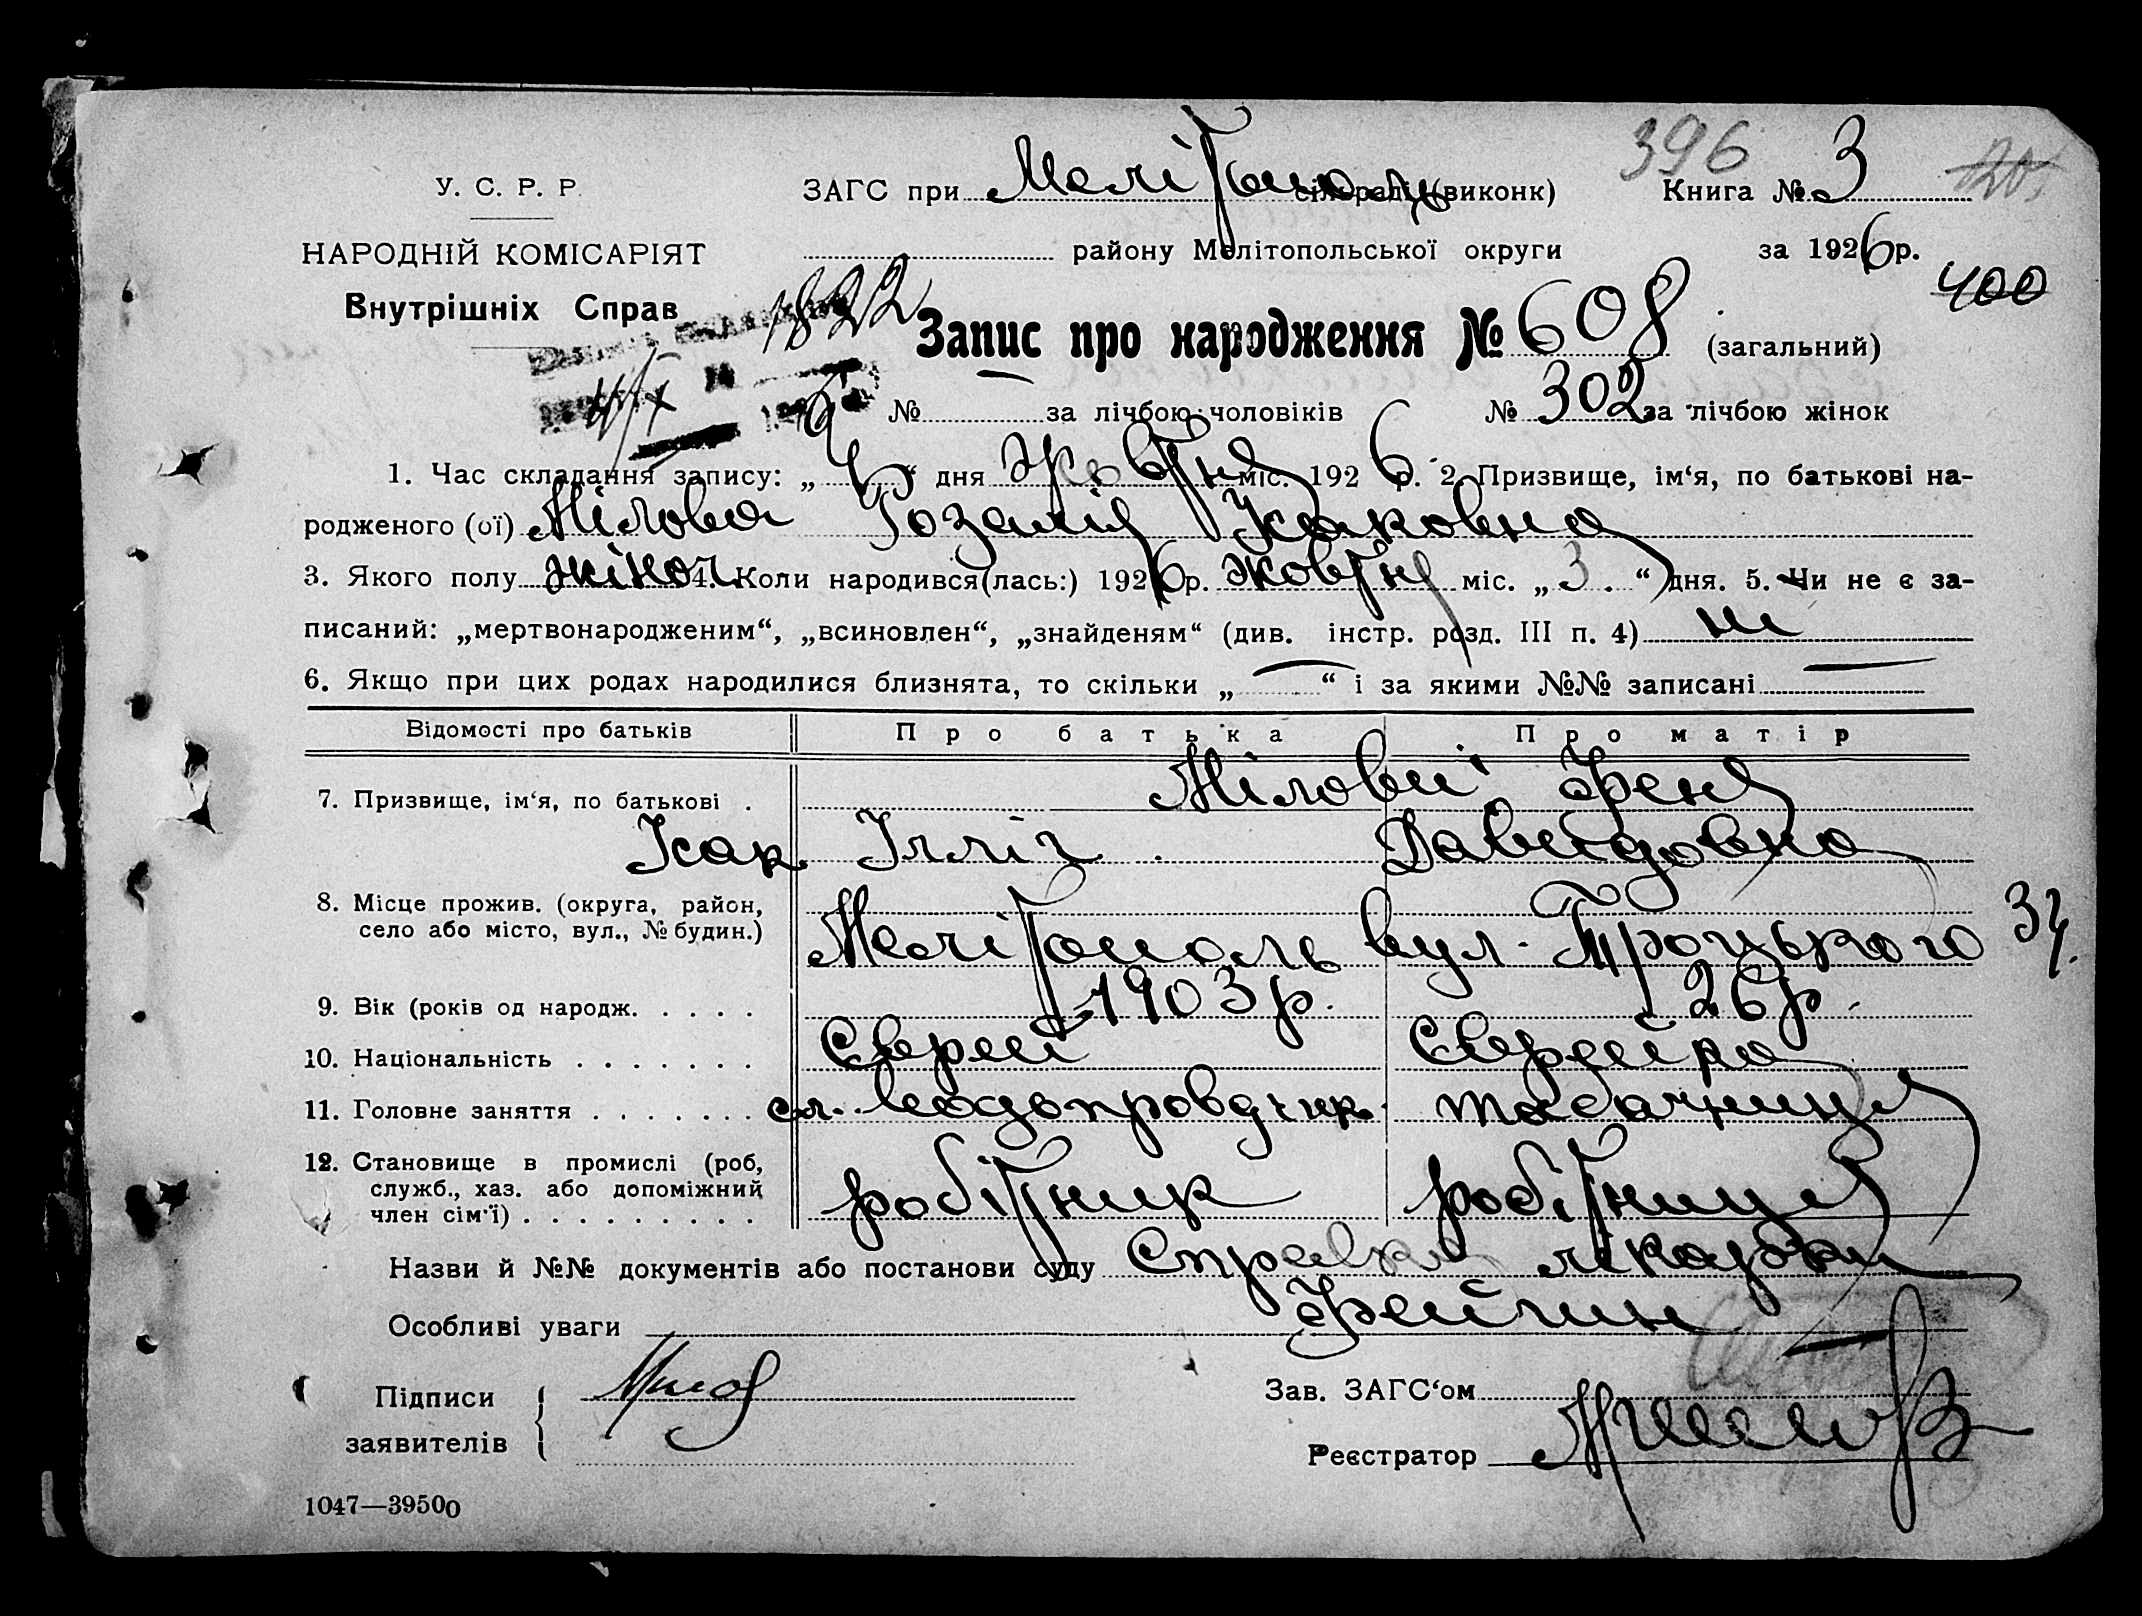 396
У. С. Р. Р. ЗАГС при Мелітополь сільраді (виконк) Книга № 3
НАРОДНІЙ КОМІСАРІЯТ району Мелітопольської округи за 1926 р.
400
Внутрішніх Справ 1822 Запис про народження № 608 (загальний)
№ за лічбою чоловіків № 302 за лічбою жінок
1. Час складання запису: „ “ дня жовтня міс. 1926 р. 2. Призвище, ім‘я, по батькові на-
родженого (ої) Мілова Розалія Ісаковна
3. Якого полу жіноч 4. Коли народився(лась:) 1926 р. жовтня міс. „3.“ дня. 5. Чи не є за-
писаний: „мертвонародженим“, „всиновлен“, „знайденям“ (див. інстр. розд. III п. 4) ні
6. Якщо при цих родах народилися близнята, то скільки „ “ і за якими №№ записані
Відомості про батьків Про батька Про матір
7. Призвище, ім‘я, по батькові . Мілови Феня
Ісак Ілліч Давидовна
8. Місце прожив. (округа, район,
село або місто, вул., № будин.) Мелітополь вул. Троцького 34.
9. Вік (років од народж. . . . . 1903 р. 26 р.
10. Національність . . . . . . . Єврей Єврейка
11. Головне заняття . . . . . . . сл. водопроводчик табачниця
12. Становище в промислі (роб,
служб., хаз. або допоміжний
член сім‘ї) . . . . . . . . . робітник робітниця
Назви й №№ документів або постанови суду Справка лікарки
Особливі уваги Фейгин
Підписи Зав. ЗАГС‘ом
заявителів Реєстратор
1047—39500